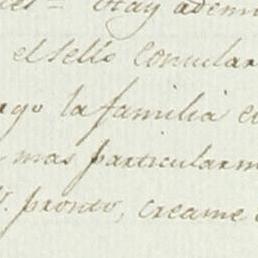 Hay adem
el sello consular
go la familia
mas particularm
pronto, creame